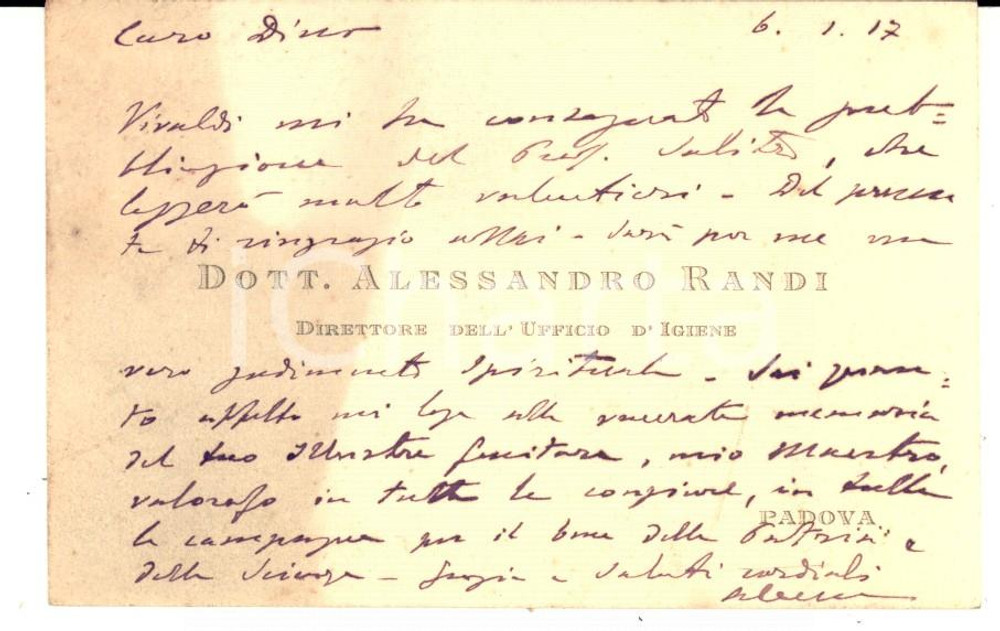 Caro Dino 6. 1. 17
Vivaldi mi ha consegnato la pub=
blicazione del Prof. , che
leggerò molto volentieri - Del presen
te ti ringrazio assai - Sarà per me un
DOTT. ALESSANDRO RANDI
DIRETTORE DELL'UFFICIO D'IGIENE
vero godimento spirituale - Sai quan=
to affetto mi lega alla venerata memoria
del tuo Illustre Genitore, mio Maestro,
valoroso in tutte le congiure, in tutte
PADOVA
le campagne per il bene della Patria e
della Scienza - Grazie e saluti cordiali
iCharta